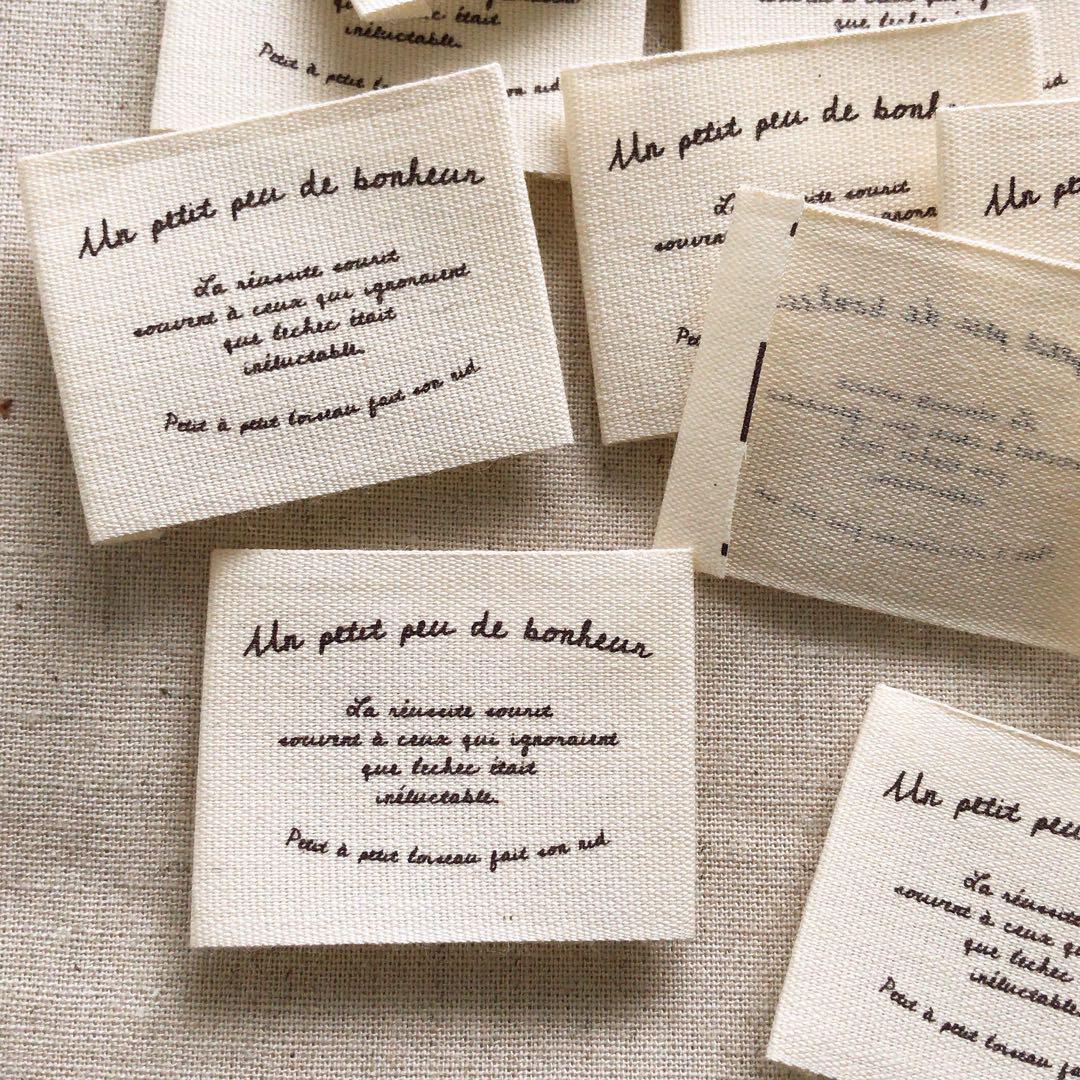 que
était
inéluctable.
Petit à petit
Un petit peu de bonheur
La réussite sourit
souvent à ceux qui ignoraient
que lechec était
inéluctable.
Petit à petit loiseau fait son nid
Un petit peu de
souvent
Un
Un petit peu de bonheur
La réussite sourit
souvent à ceux qui ignoraient
que lechec était
inéluctable.
Petit à petit loiseau fait son nid
Un petit peu
La réussite
souvent à ceux
que lechec
inéluctable.
Petit à petit loiseau